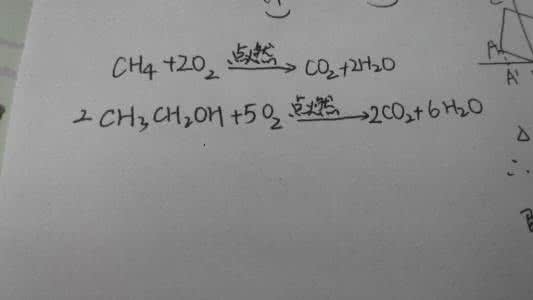 CH₄+2O₂ 点燃→ CO₂+2H₂O
2CH₃CH₂OH+5O₂ 点燃→ 2CO₂+6H₂O
A
A'
△
∴